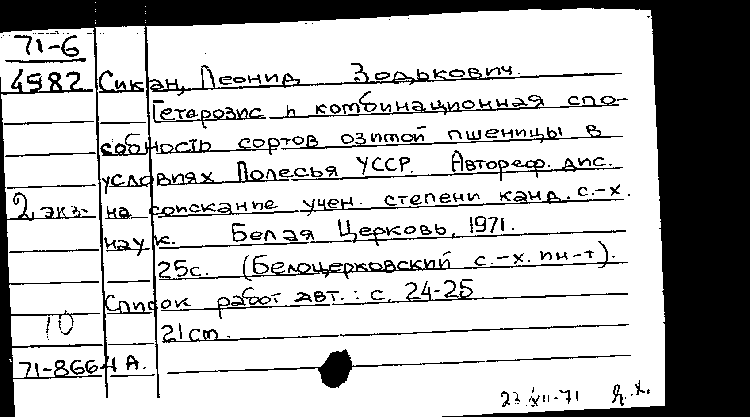 71-6
4982 Сикан, Леонид Зодькович.
Гетерозис и комбинационная спо-
собность сортов озимой пшеницы в
условиях Полесья УССР. Автореф. дис.
2 экз. на соискание учен. степени канд. с.-х.
наук. Белая Церковь, 1971.
25с. (Белоцерковский с.-х. ин-т).
Список работ авт.: с. 24-25
10
21 cm.
71-8664 А.
23 XII-71